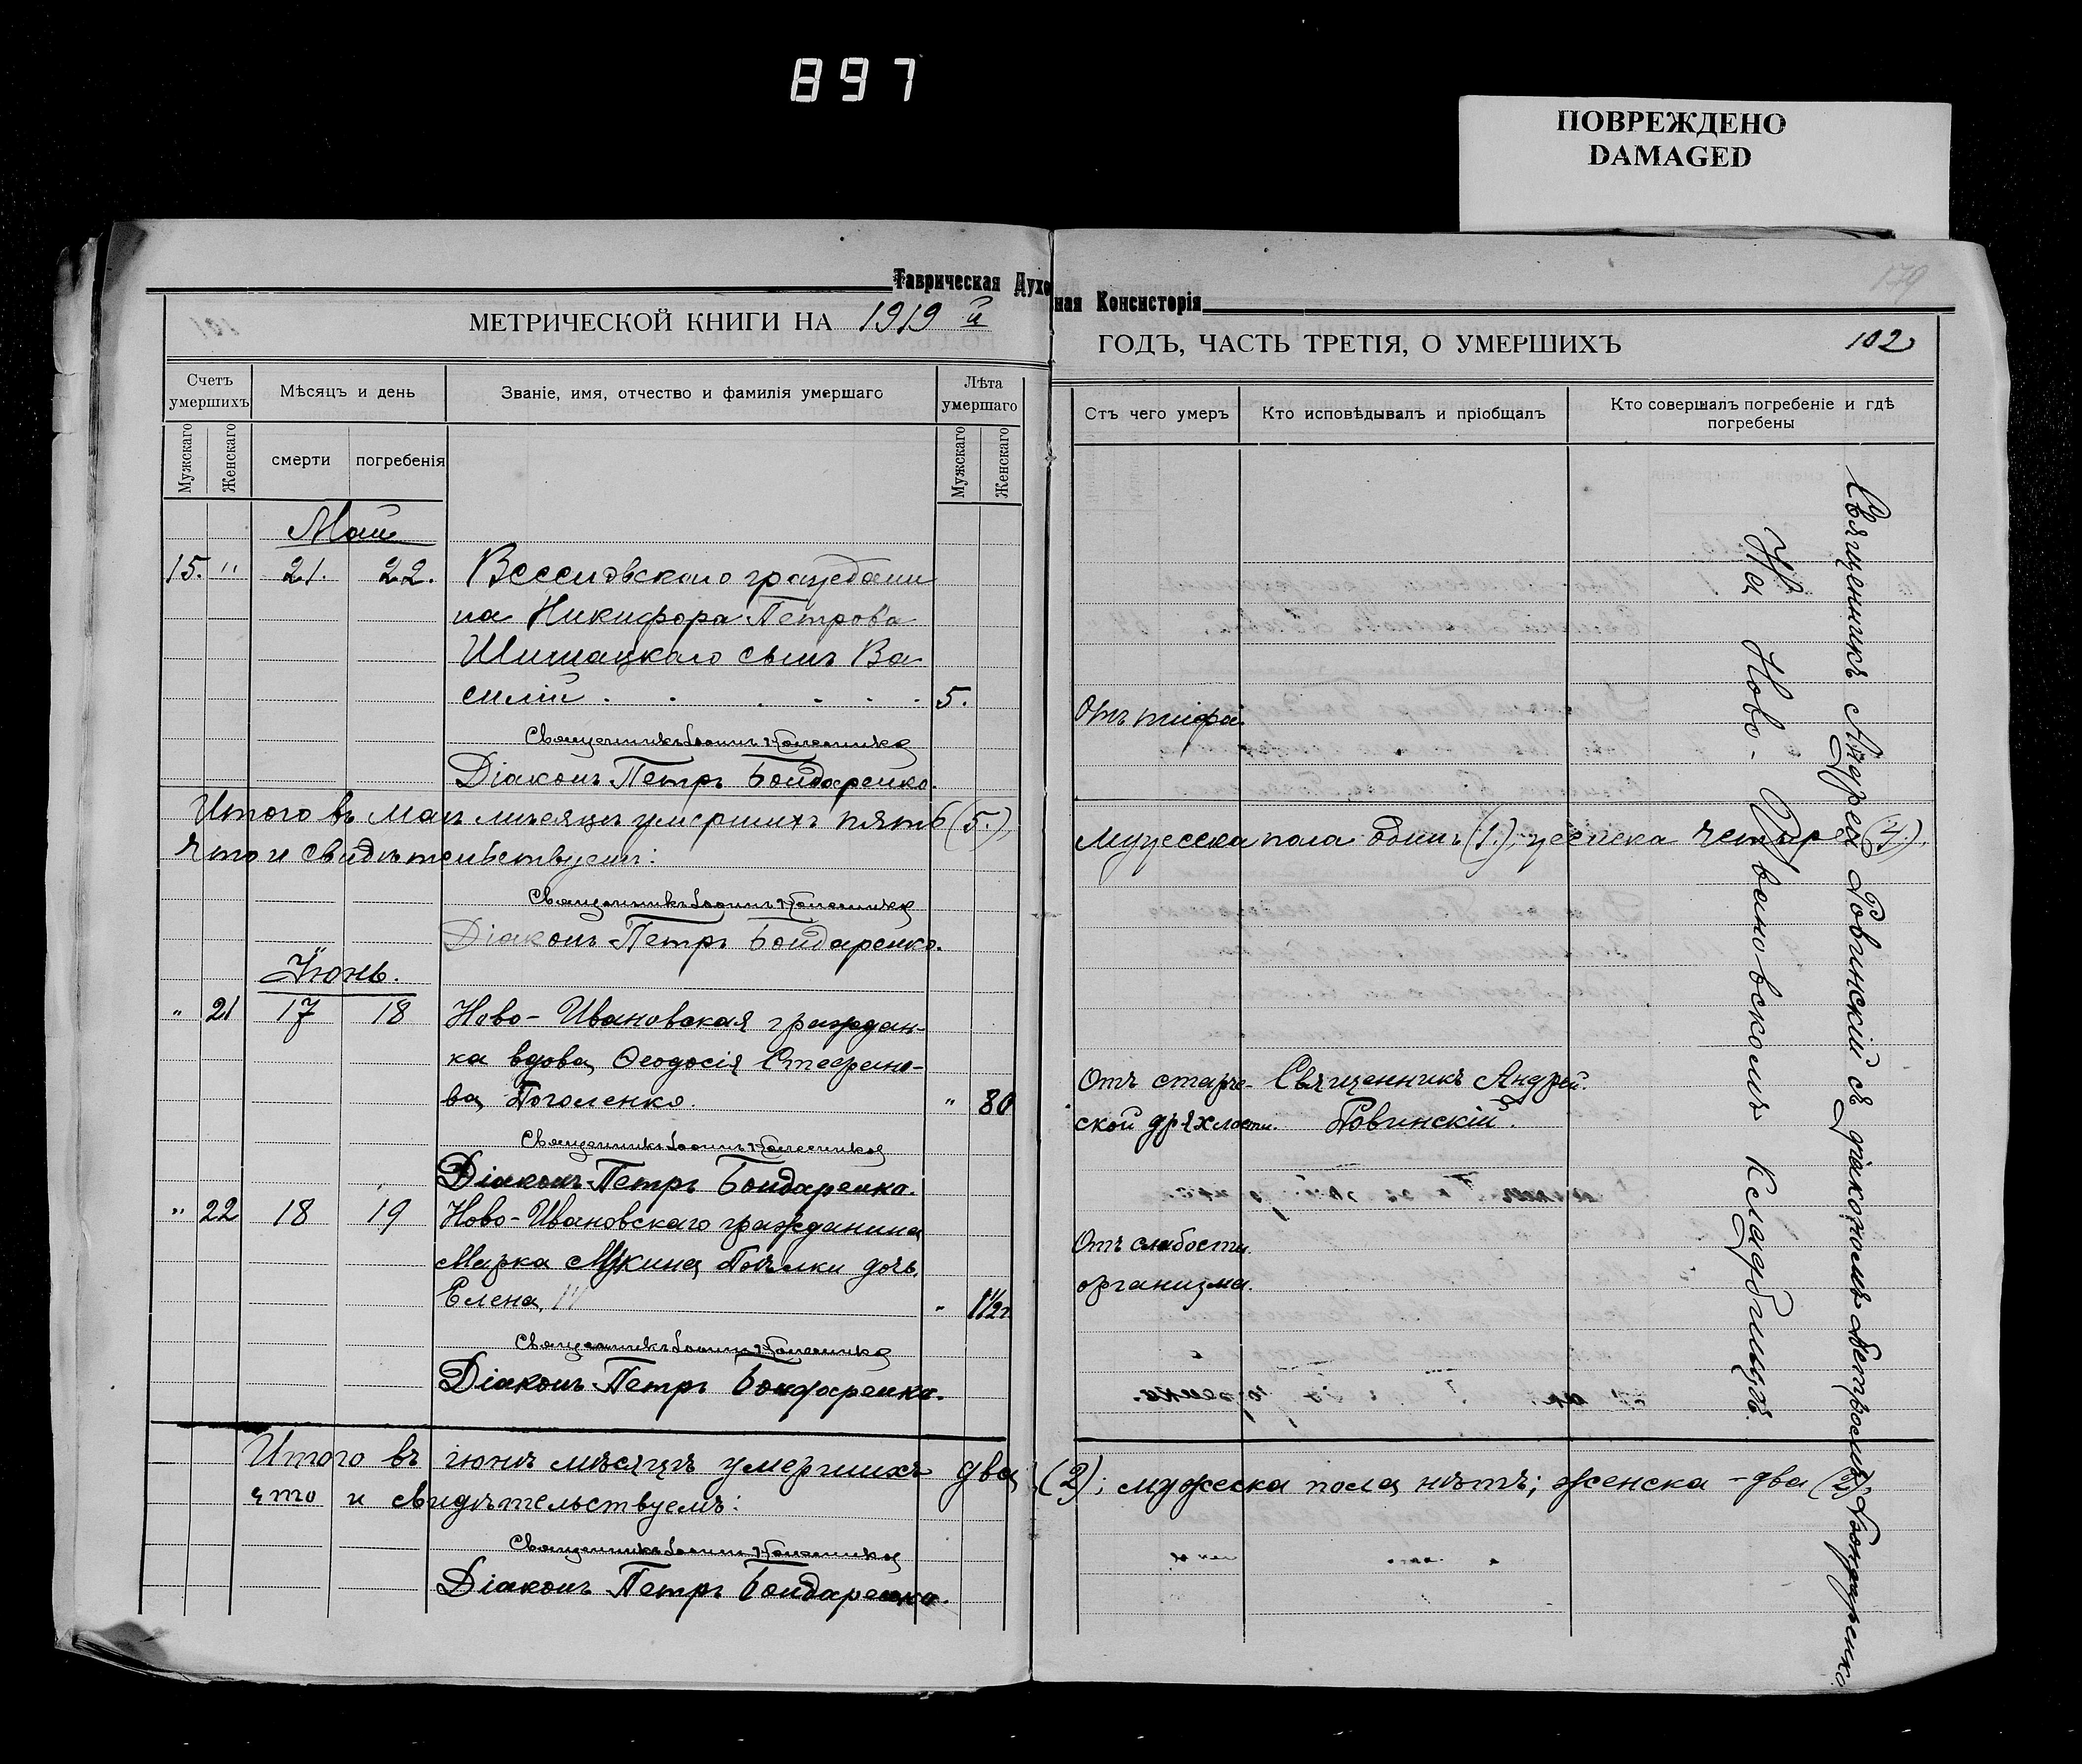 897
ПОВРЕЖДЕНО
DAMAGED
Таврическая Духо
ная Консисторія
179
МЕТРИЧЕСКОЙ КНИГИ НА 1919 й
ГОДЪ, ЧАСТЬ ТРЕТІЯ, О УМЕРШИХЪ
102
Счетъ умершихъ
Мѣсяцъ и день
Званіе, имя, отчество и фамилія умершаго
Лѣта умершаго
Стъ чего умеръ
Кто исповѣдывалъ и пріобщалъ
Кто совершалъ погребеніе и гдѣ погребены
Мужскаго
Женскаго
смерти
погребенія
Мужскаго
Женскаго
Май
15. " 21. 22. Веселовскаго граждани
на Никифора Петрова
Шишацкаго сынъ Ва
силій . . . . . . 5.
Отъ тифа.
Священникъ Іоаннъ
Діаконъ Петръ Бондаренко.
Итого въ маѣ мѣсяцѣ умершихъ пять (5.),
мужеска пола одинъ (1.), женска четыре (4.).
что и свидѣтельствуемъ:
Священникъ Іоаннъ
Діаконъ Петръ Бондаренко.
Іюнь.
" 21 17 18 Ново-Ивановская граждан-
ка вдова Ѳеодосія Стефано-
ва Поголенко. " 80
Отъ старче-
ской дряхлости.
Священникъ Андрей
Ровинскій.
Священникъ Іоаннъ
Діаконъ Петръ Бондаренко.
" 22 18 19 Ново-Ивановскаго гражданина
Марка дочь
Елена " 1 1/2 г.
Отъ слабости
организма.
Священникъ Іоаннъ
Діаконъ Петръ Бондаренко.
Итого въ іюнѣ мѣсяцѣ умершихъ два
(2); мужеска пола нѣтъ; женска - два (2)
что и свидѣтельствуемъ:
Священникъ Іоаннъ
Діаконъ Петръ Бондаренко.
Священникъ Андрей Ровинскій съ діакономъ Петромъ Бондаренко.
На Ново-Ивановскомъ кладбищѣ.